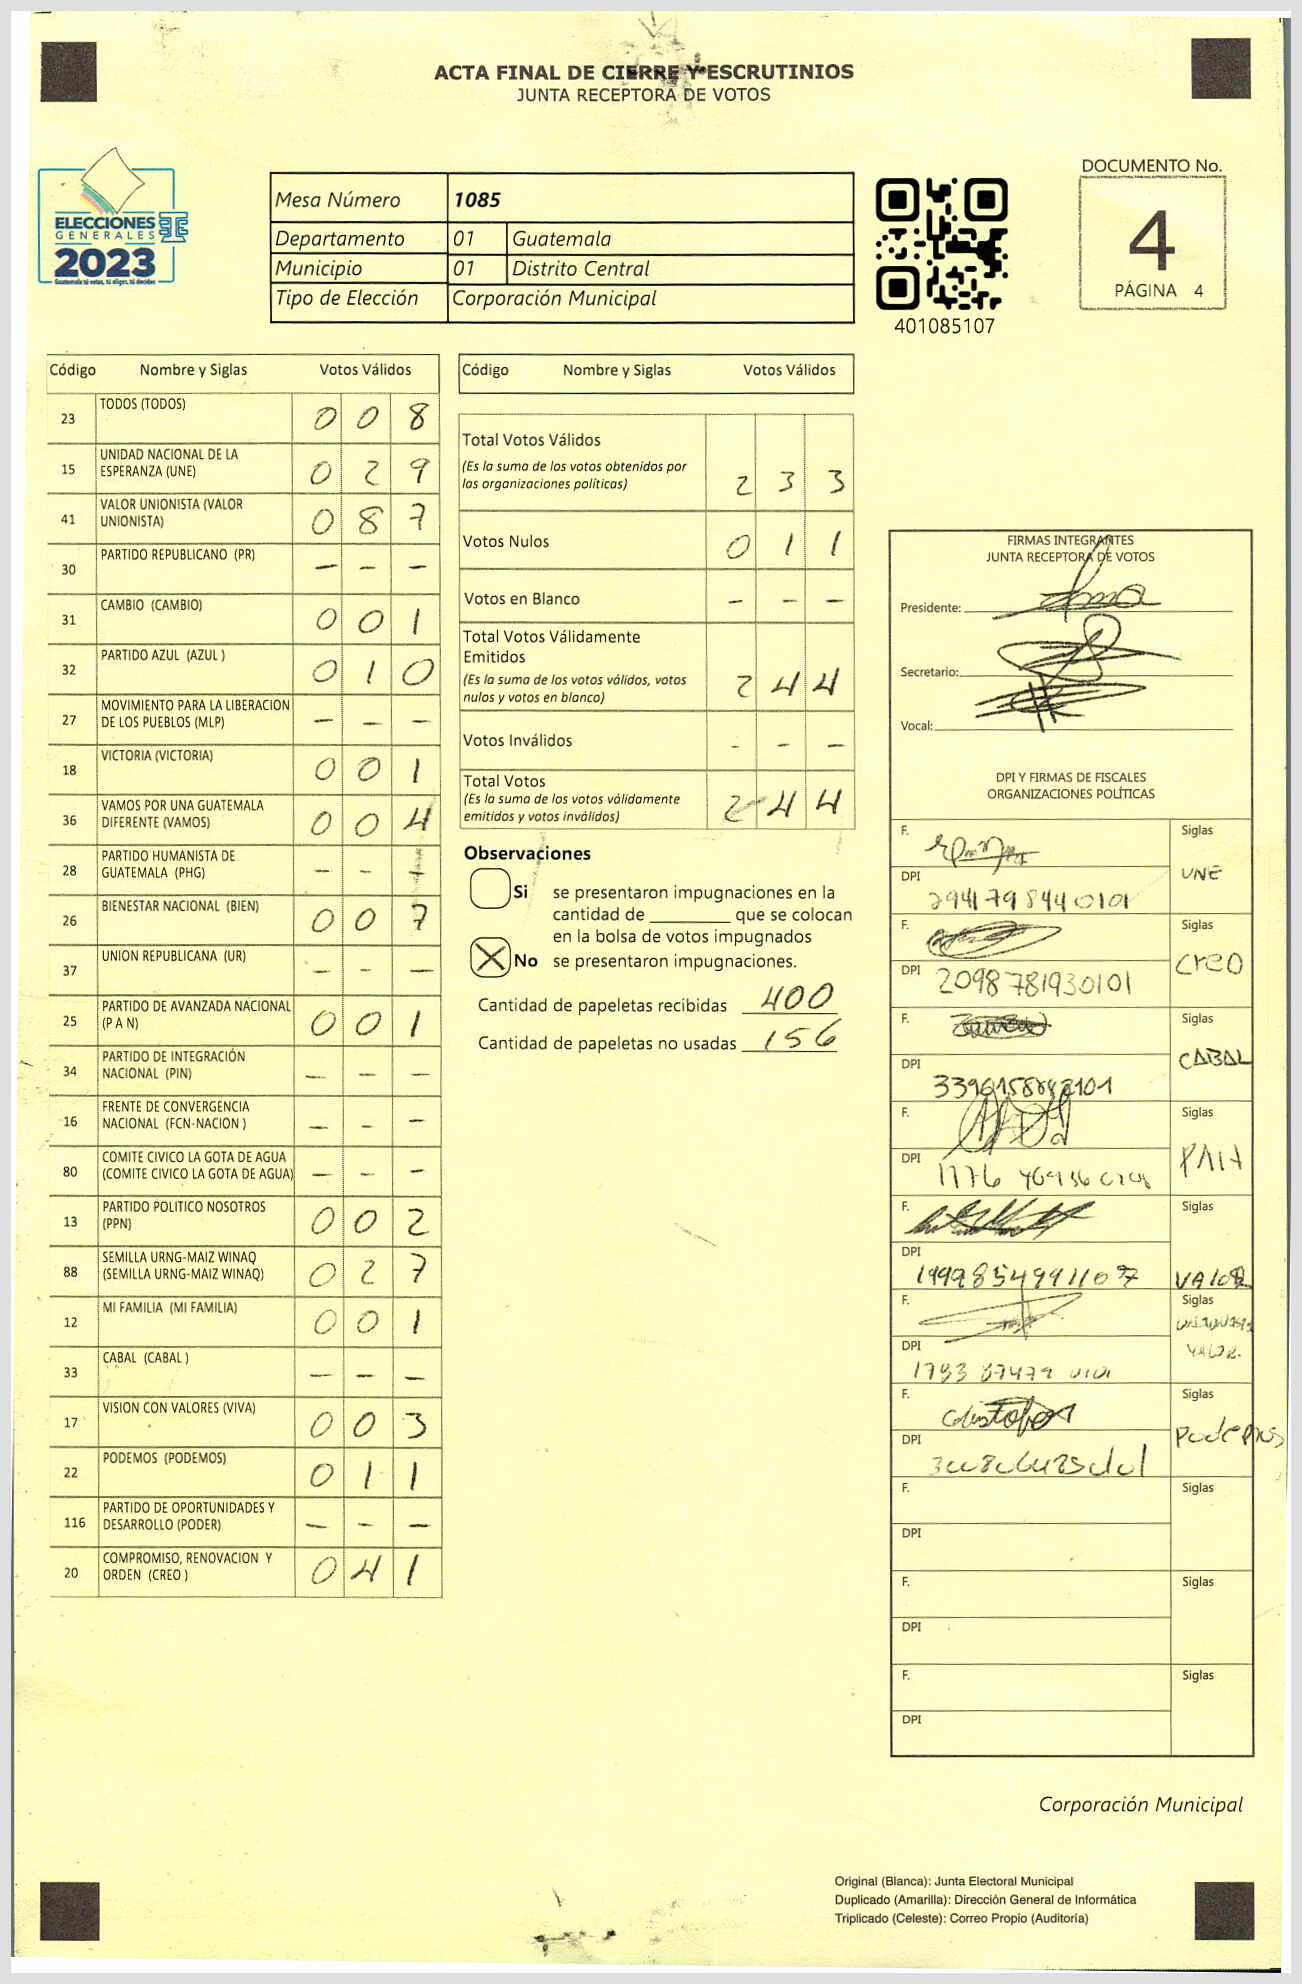 ACTA FINAL DE CIERRE Y ESCRUTINIOS
JUNTA RECEPTORA DE VOTOS
ELECCIONES
GENERALES
2023
Guatemala tú votas, tú eliges, tú decides
Mesa Número 1085
Departamento 01 Guatemala
Municipio 01 Distrito Central
Tipo de Elección Corporación Municipal
401085107
DOCUMENTO No.
4
PÁGINA 4
Código Nombre y Siglas Votos Válidos
23 TODOS (TODOS) 0 0 8
15 UNIDAD NACIONAL DE LA ESPERANZA (UNE) 0 2 9
41 VALOR UNIONISTA (VALOR UNIONISTA) 0 8 7
30 PARTIDO REPUBLICANO (PR) - - -
31 CAMBIO (CAMBIO) 0 0 1
32 PARTIDO AZUL (AZUL ) 0 1 0
27 MOVIMIENTO PARA LA LIBERACION DE LOS PUEBLOS (MLP) - - -
18 VICTORIA (VICTORIA) 0 0 1
36 VAMOS POR UNA GUATEMALA DIFERENTE (VAMOS) 0 0 4
28 PARTIDO HUMANISTA DE GUATEMALA (PHG) - - -
26 BIENESTAR NACIONAL (BIEN) 0 0 7
37 UNION REPUBLICANA (UR) - - -
25 PARTIDO DE AVANZADA NACIONAL (P A N) 0 0 1
34 PARTIDO DE INTEGRACIÓN NACIONAL (PIN) - - -
16 FRENTE DE CONVERGENCIA NACIONAL (FCN-NACION ) - - -
80 COMITE CIVICO LA GOTA DE AGUA (COMITE CIVICO LA GOTA DE AGUA) - - -
13 PARTIDO POLITICO NOSOTROS (PPN) 0 0 2
88 SEMILLA URNG-MAIZ WINAQ (SEMILLA URNG-MAIZ WINAQ) 0 2 7
12 MI FAMILIA (MI FAMILIA) 0 0 1
33 CABAL (CABAL ) - - -
17 VISION CON VALORES (VIVA) 0 0 3
22 PODEMOS (PODEMOS) 0 1 1
116 PARTIDO DE OPORTUNIDADES Y DESARROLLO (PODER) - - -
20 COMPROMISO, RENOVACION Y ORDEN (CREO ) 0 4 1
Código Nombre y Siglas Votos Válidos
Total Votos Válidos
(Es la suma de los votos obtenidos por
las organizaciones políticas) 2 3 3
Votos Nulos 0 1 1
Votos en Blanco - - -
Total Votos Válidamente
Emitidos
(Es la suma de los votos válidos, votos
nulos y votos en blanco) 2 4 4
Votos Inválidos - - -
Total Votos
(Es la suma de los votos válidamente
emitidos y votos inválidos) 2 4 4
Observaciones
Si se presentaron impugnaciones en la
cantidad de ________ que se colocan
en la bolsa de votos impugnados
X No se presentaron impugnaciones.
Cantidad de papeletas recibidas 400
Cantidad de papeletas no usadas 156
FIRMAS INTEGRANTES
JUNTA RECEPTORA DE VOTOS
Presidente:
Secretario:
Vocal:
DPI Y FIRMAS DE FISCALES
ORGANIZACIONES POLÍTICAS
F. Siglas
UNE
DPI 2941798440101
F. Siglas
CREO
DPI 2098781930101
F. Siglas
CABAL
DPI
F. Siglas
DPI
F. Siglas
VALOR
DPI 1999854991107
F. Siglas
VALOR.
DPI
F. Siglas
Podemos
DPI
F. Siglas
DPI
F. Siglas
DPI
F. Siglas
DPI
Corporación Municipal
Original (Blanca): Junta Electoral Municipal
Duplicado (Amarilla): Dirección General de Informática
Triplicado (Celeste): Correo Propio (Auditoría)